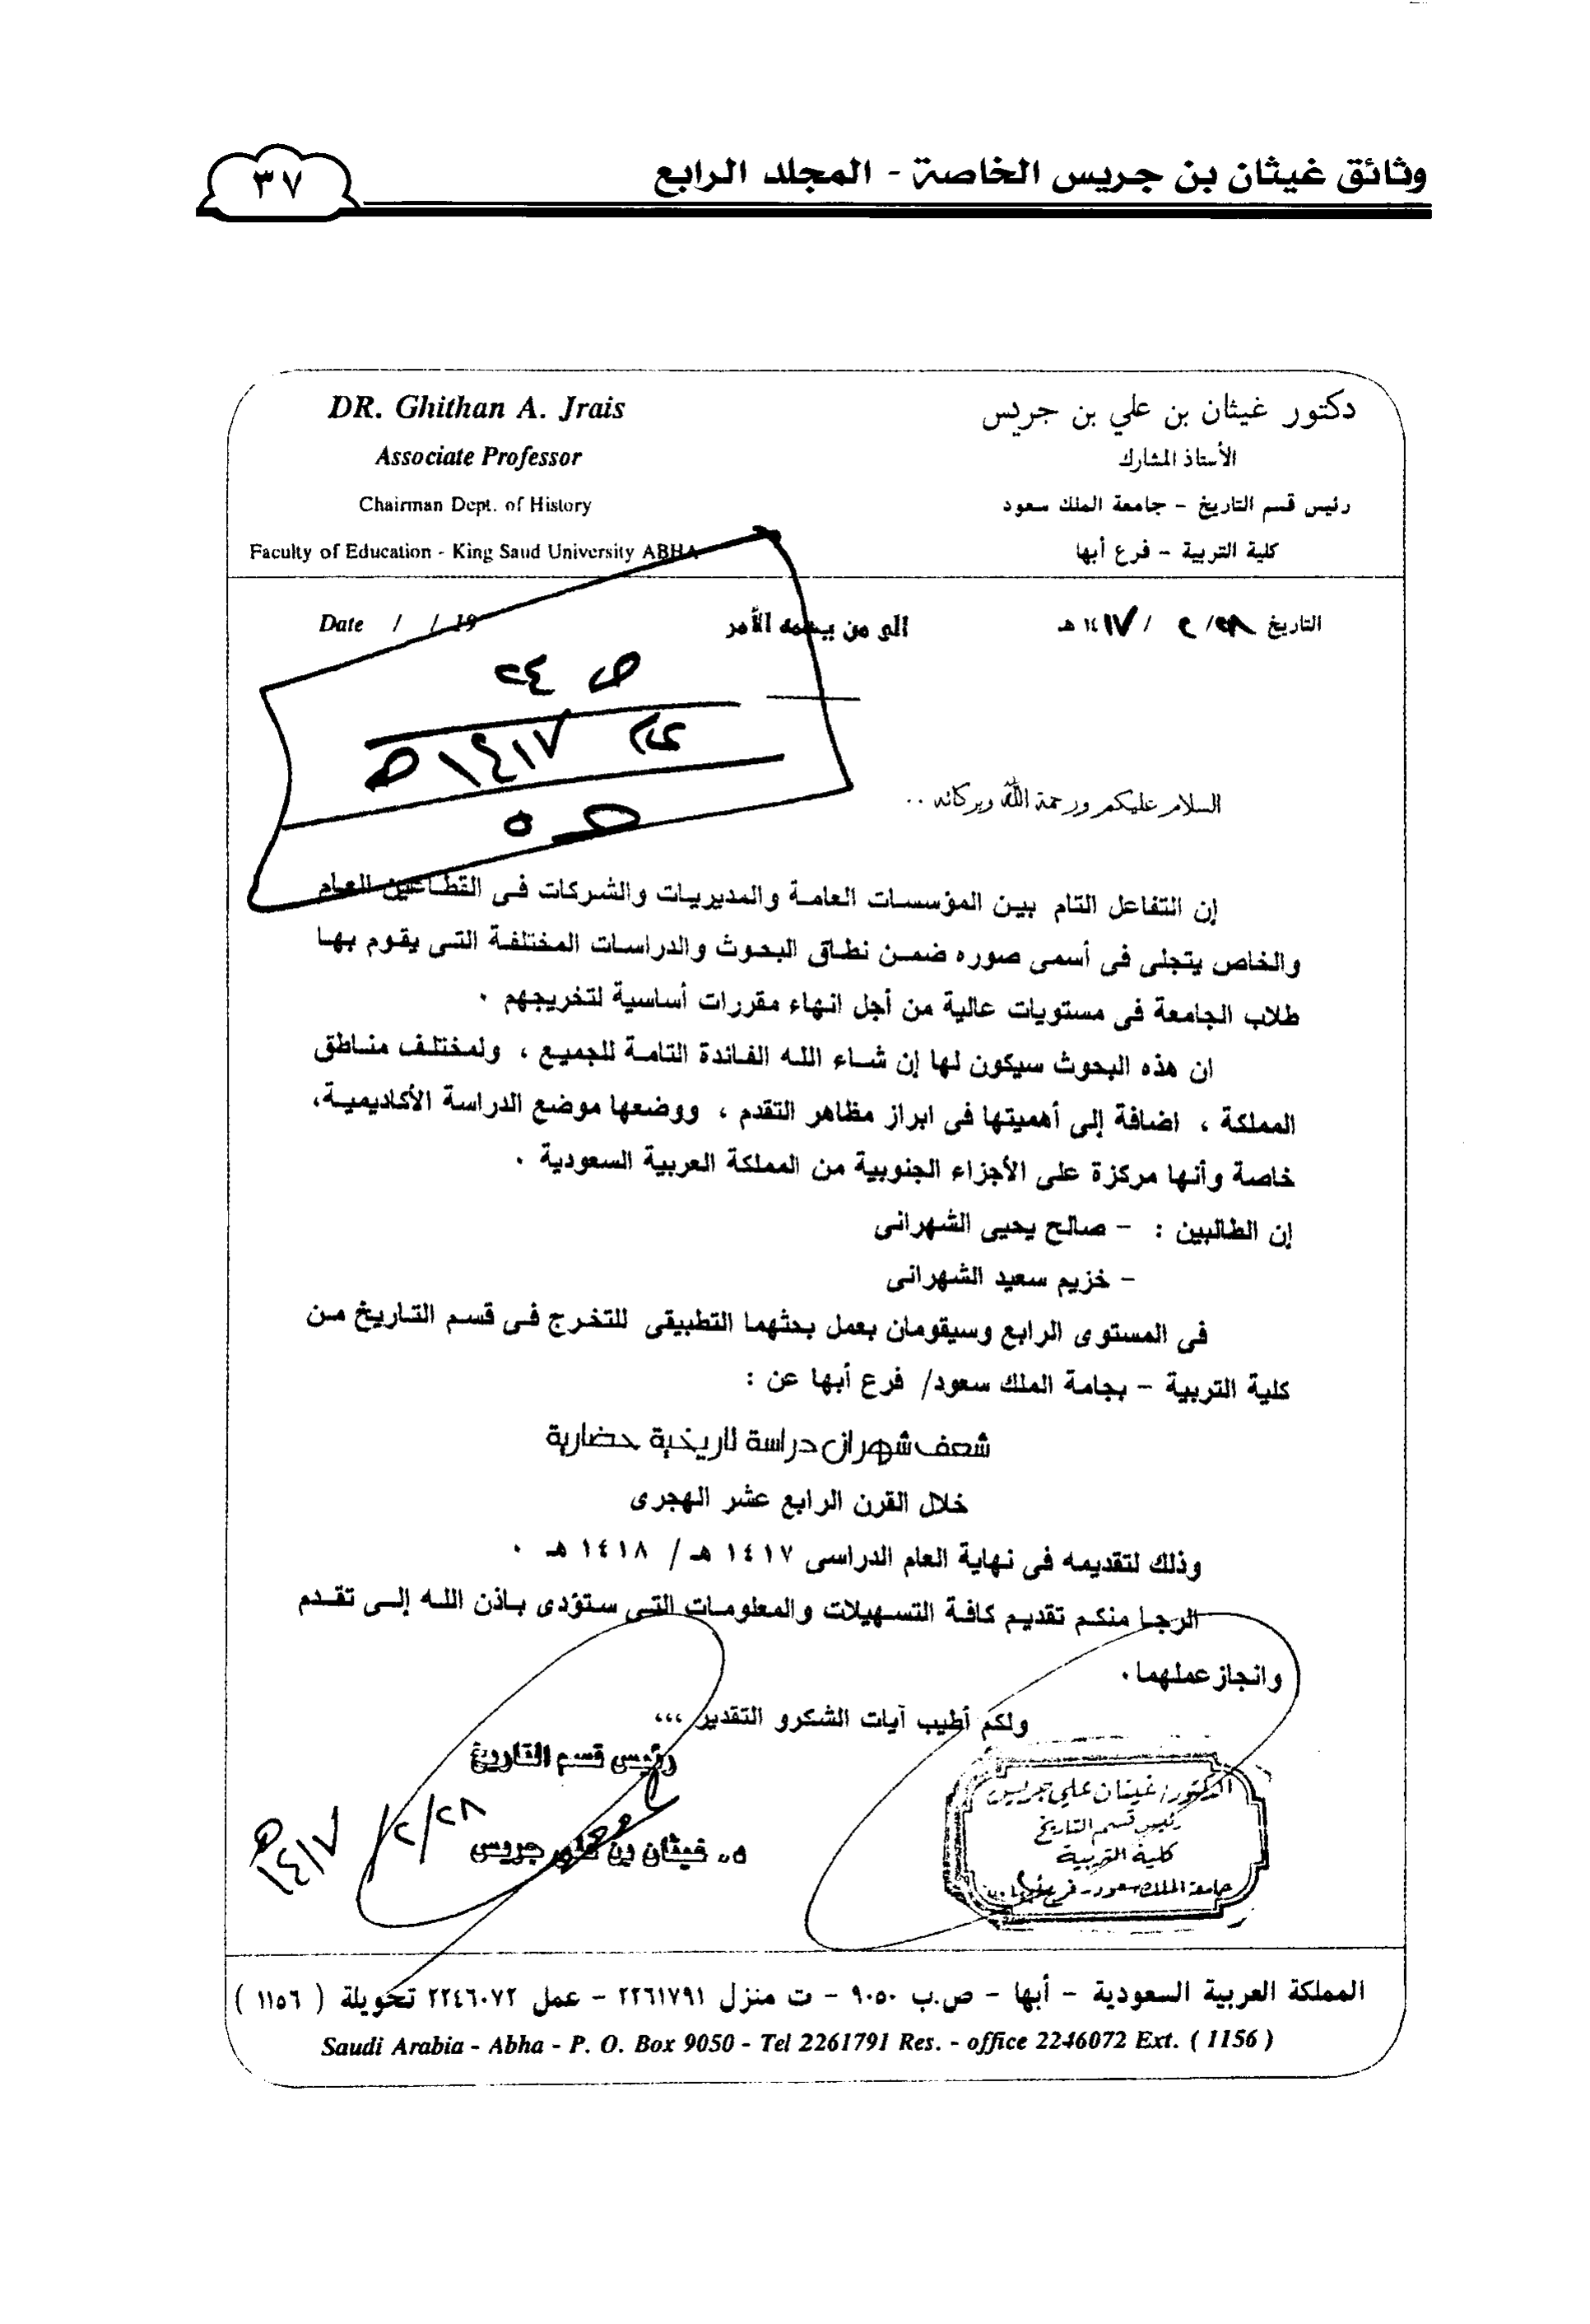 وثائق غيثان بن جريس الخاصة - المجلد الرابع
٣٧
دكتور غيثان بن علي بن جريس
الأستاذ المشارك
رئيس قسم التاريخ - جامعة الملك سعود
كلية التربية - فرع أبها
DR. Ghithan A. Jrais
Associate Professor
Chairman Dept. of History
Faculty of Education - King Saud University ABHA
التاريخ ٢٨/ ٢ / ١٤١٧ هـ
الى من يهمه الأمر
Date / / 19
ص ٢٤
١٤١٧ هـ
السلام عليكم ورحمة الله وبركاته ..
إن التفاعل التام بين المؤسسات العامة والمديريات والشركات فى القطاعين العام
والخاص يتجلى فى أسمى صوره ضمن نطاق البحوث والدراسات المختلفة التى يقوم بها
طلاب الجامعة فى مستويات عالية من أجل انهاء مقررات أساسية لتخريجهم ٠
ان هذه البحوث سيكون لها إن شاء الله الفائدة التامة للجميع ، ولمختلف مناطق
المملكة ، اضافة إلى أهميتها فى ابراز مظاهر التقدم ، ووضعها موضع الدراسة الأكاديمية،
خاصة وأنها مركزة على الأجزاء الجنوبية من المملكة العربية السعودية ٠
إن الطالبين : - صالح يحيى الشهرانى
- خزيم سعيد الشهرانى
فى المستوى الرابع وسيقومان بعمل بحثهما التطبيقى للتخرج فى قسم التاريخ من
كلية التربية - بجامة الملك سعود/ فرع أبها عن :
شعف شهران دراسة تاريخية حضارية
خلال القرن الرابع عشر الهجرى
وذلك لتقديمه فى نهاية العام الدراسى ١٤١٧ هـ / ١٤١٨ هـ ٠
الرجا منكم تقديم كافة التسهيلات والمعلومات التى ستؤدى باذن الله إلى تقدم
وانجاز عملهما ٠
ولكم أطيب آيات الشكرو التقدير ،،،
رئيس قسم التاريخ
د. غيثان بن على جريس
٢٨/ ٢/ ١٤١٧ هـ
الدكتور/ غيثان علي جريس
رئيس قسم التاريخ
كلية التربية
جامعة الملك سعود - فرع أبها
المملكة العربية السعودية - أبها - ص.ب ٩٠٥٠ - ت منزل ٢٢٦١٧٩١ - عمل ٢٢٤٦٠٧٢ تحويلة ( ١١٥٦ )
Saudi Arabia - Abha - P. O. Box 9050 - Tel 2261791 Res. - office 2246072 Ext. ( 1156 )